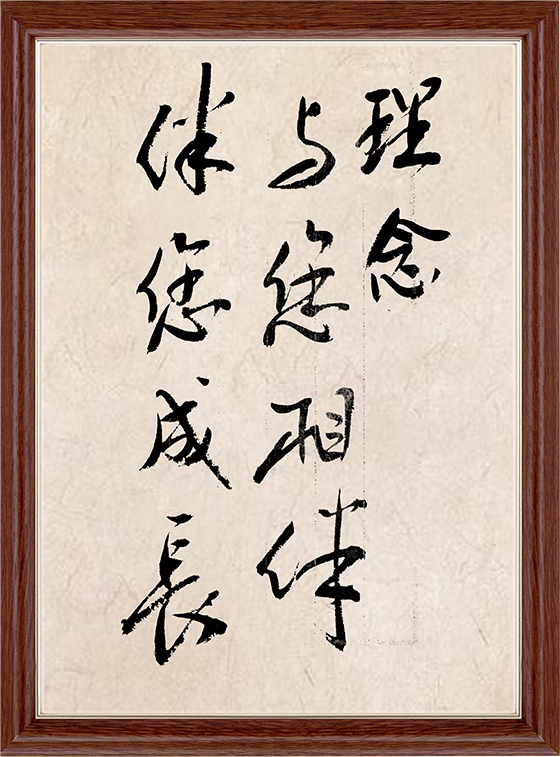 理念
与您相伴
伴您成長